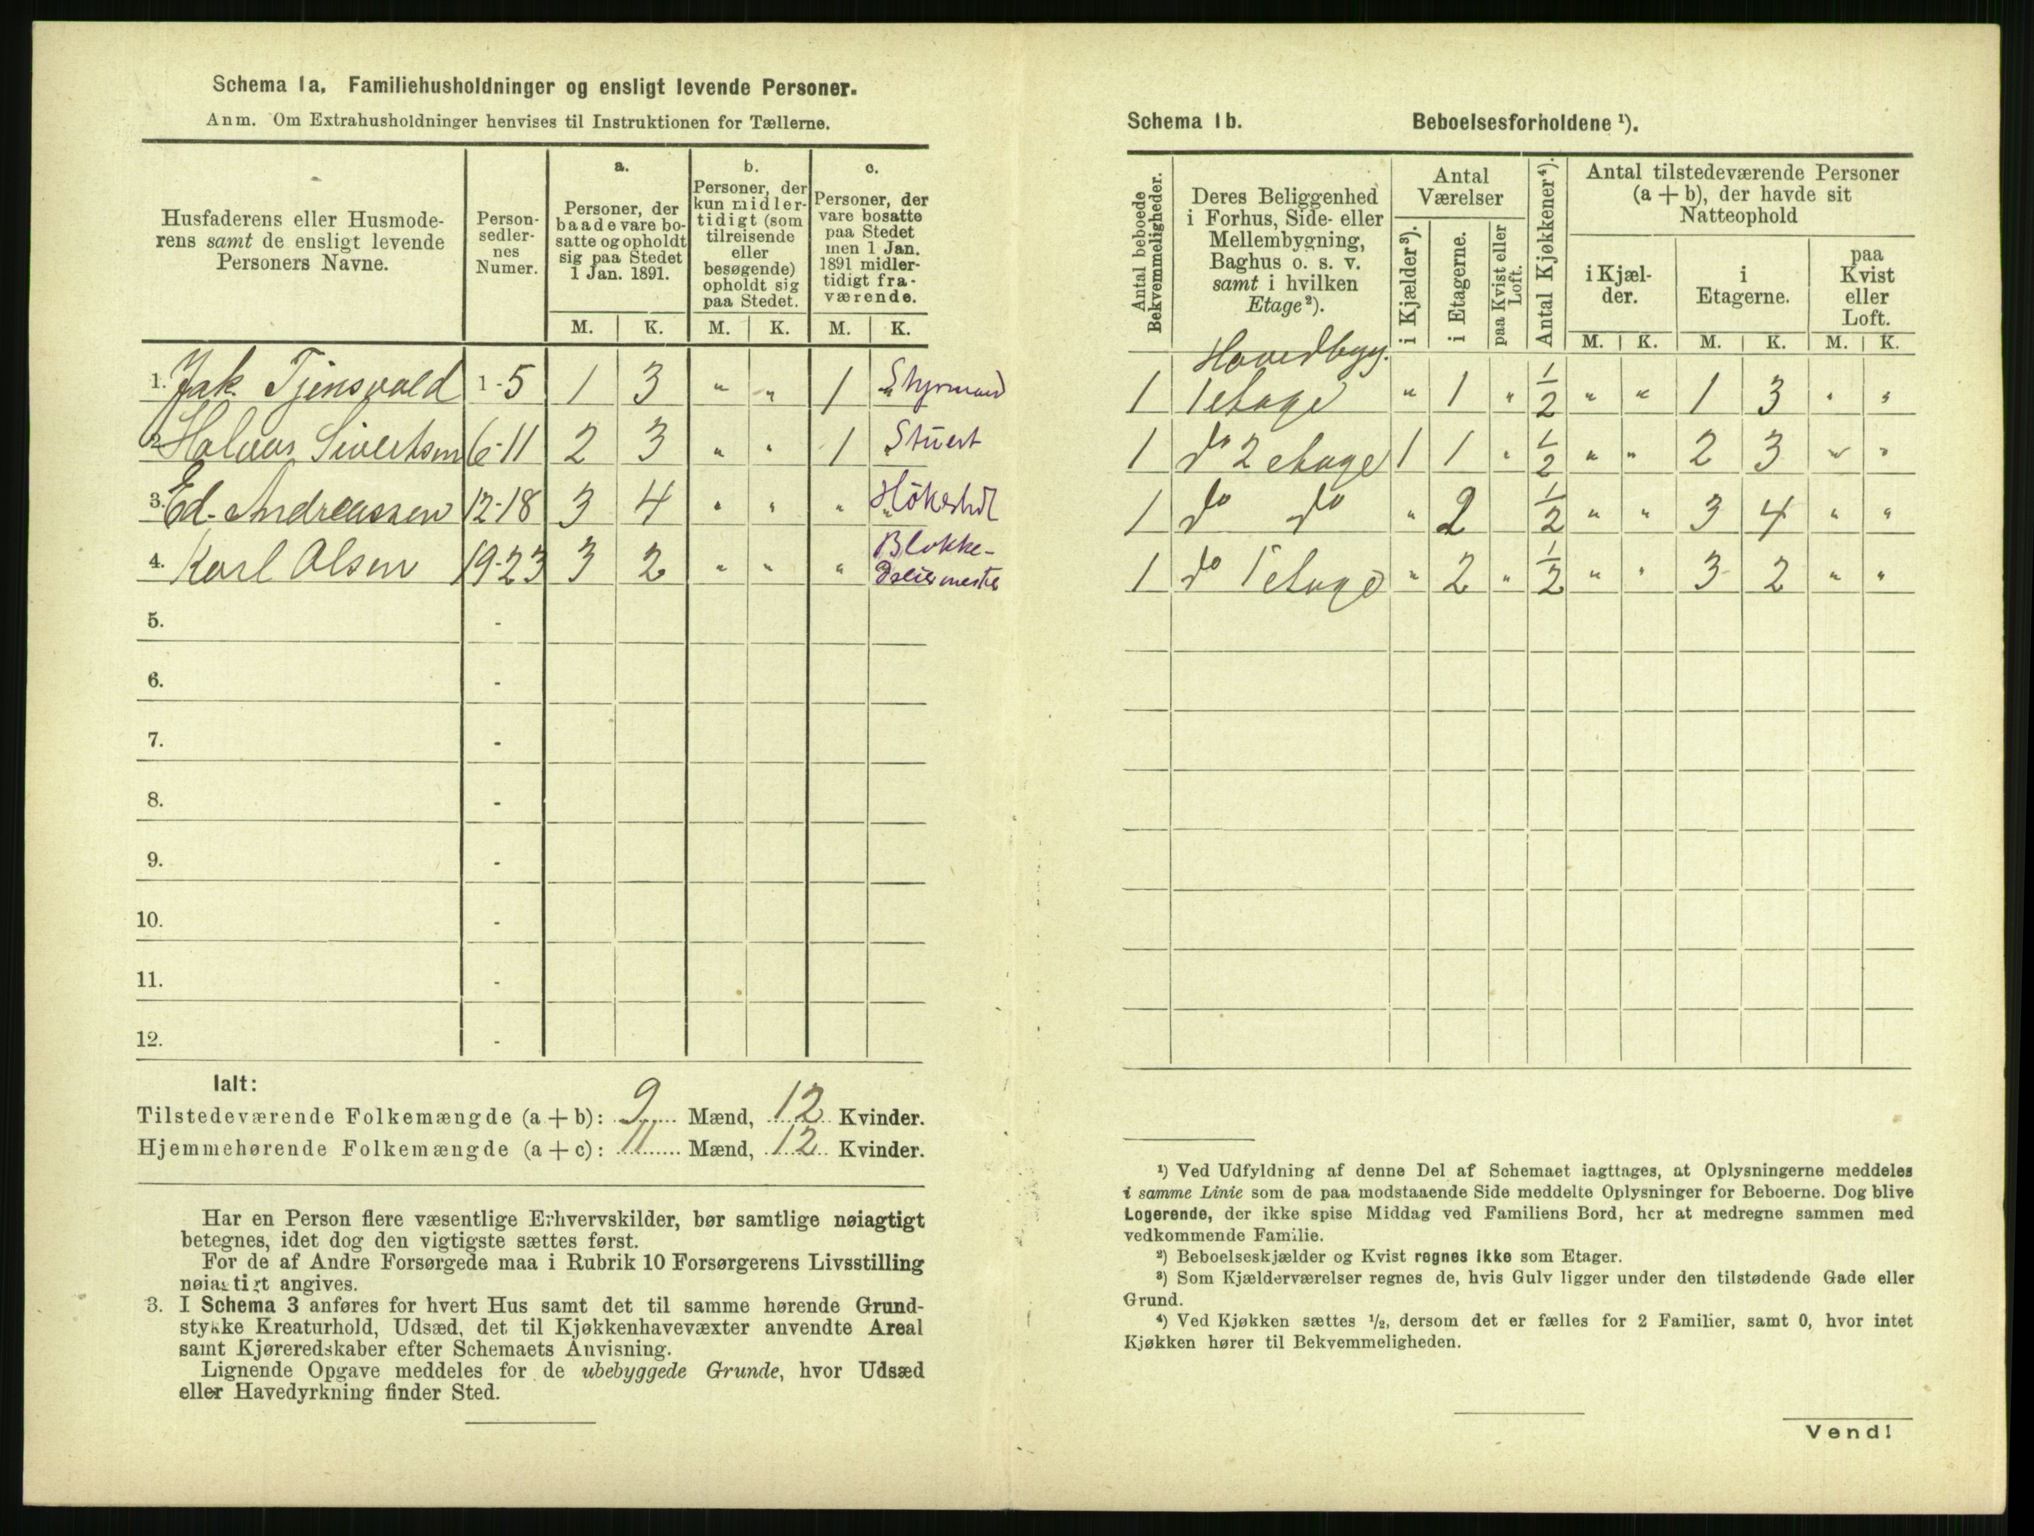 Schema 1a. Familiehusholdninger og ensligt levende Personer.
Anm. Om Extrahusholdninger henvises til Instruktionen for Tællerne.
Husfaderens eller Husmode-
rens samt de ensligt levende
Personers Navne.
Person-
sedler-
nes
Numer.
a.
Personer, der
baade vare bo-
satte og opholdt
sig paa Stedet
1 Jan. 1891.
b.
Personer, der
kun midler-
tidigt (som
tilreisende
eller
besøgende)
opholdt sig
paa Stedet.
c.
Personer, der
vare bosatte
paa Stedet
men 1 Jan.
1891 midler-
tidigt fra-
værende.
M. K. M. K. M. K.
1. Jak. Tjensvold 1-5 1 3 " " 1 " Styrmand
2. Halvor Sivertsen 6-11 2 3 " " 1 Stuert
3. Ed. Andreassen 12-18 3 4 " " " " Høkerhdl
4. Karl Olsen 19-23 3 2 " " " Blokke-
dreiermester
5. -
6. -
7. -
8. -
9. -
10. -
11. -
12. -
Ialt:
Tilstedeværende Folkemængde (a + b): 9 Mænd, 12 Kvinder.
Hjemmehørende Folkemængde (a + c): 11 Mænd, 12 Kvinder.
Har en Person flere væsentlige Erhvervskilder, bør samtlige nøiagtigt
betegnes, idet dog den vigtigste sættes først.
For de af Andre Forsørgede maa i Rubrik 10 Forsørgerens Livsstilling
nøiagtigt angives.
3. I Schema 3 anføres for hvert Hus samt det til samme hørende Grund-
stykke Kreaturhold, Udsæd, det til Kjøkkenhavevæxter anvendte Areal
samt Kjøreredskaber efter Schemaets Anvisning.
Lignende Opgave meddeles for de ubebyggede Grunde, hvor Udsæd
eller Havedyrkning finder Sted.
Schema 1b. Beboelsesforholdene ¹).
Antal beboede
Bekvemmeligheder.
Deres Beliggenhed
i Forhus, Side- eller
Mellembygning,
Baghus o. s. v.
samt i hvilken
Etage²).
Antal
Værelser
i Kjælder³).
i Etagerne.
paa Kvist eller
Loft.
Antal Kjøkkener⁴).
Antal tilstedeværende Personer
(a + b), der havde sit
Natteophold
i Kjæl-
der.
i
Etagerne.
paa
Kvist
eller
Loft.
M. K. M. K. M. K.
Hovedbyg.
1 1 etage " 1 " 1/2 " " 1 3 " "
1 do 2 etage 1 1 " 1/2 " " 2 3 " "
1 do do " 2 1/2 " " 3 4 " "
1 do 1 etage " 2 " 1/2 " " 3 2 " "
¹) Ved Udfyldning af denne Del af Schemaet iagttages, at Oplysningerne meddeles
i samme Linie som de paa modstaaende Side meddelte Oplysninger for Beboerne. Dog blive
Logerende, der ikke spise Middag ved Familiens Bord, her at medregne sammen med
vedkommende Familie.
²) Beboelseskjælder og Kvist regnes ikke som Etager.
³) Som Kjælderværelser regnes de, hvis Gulv ligger under den tilstødende Gade eller
Grund.
⁴) Ved Kjøkken sættes ½, dersom det er fælles for 2 Familier, samt 0, hvor intet
Kjøkken hører til Bekvemmeligheden.
Vend!